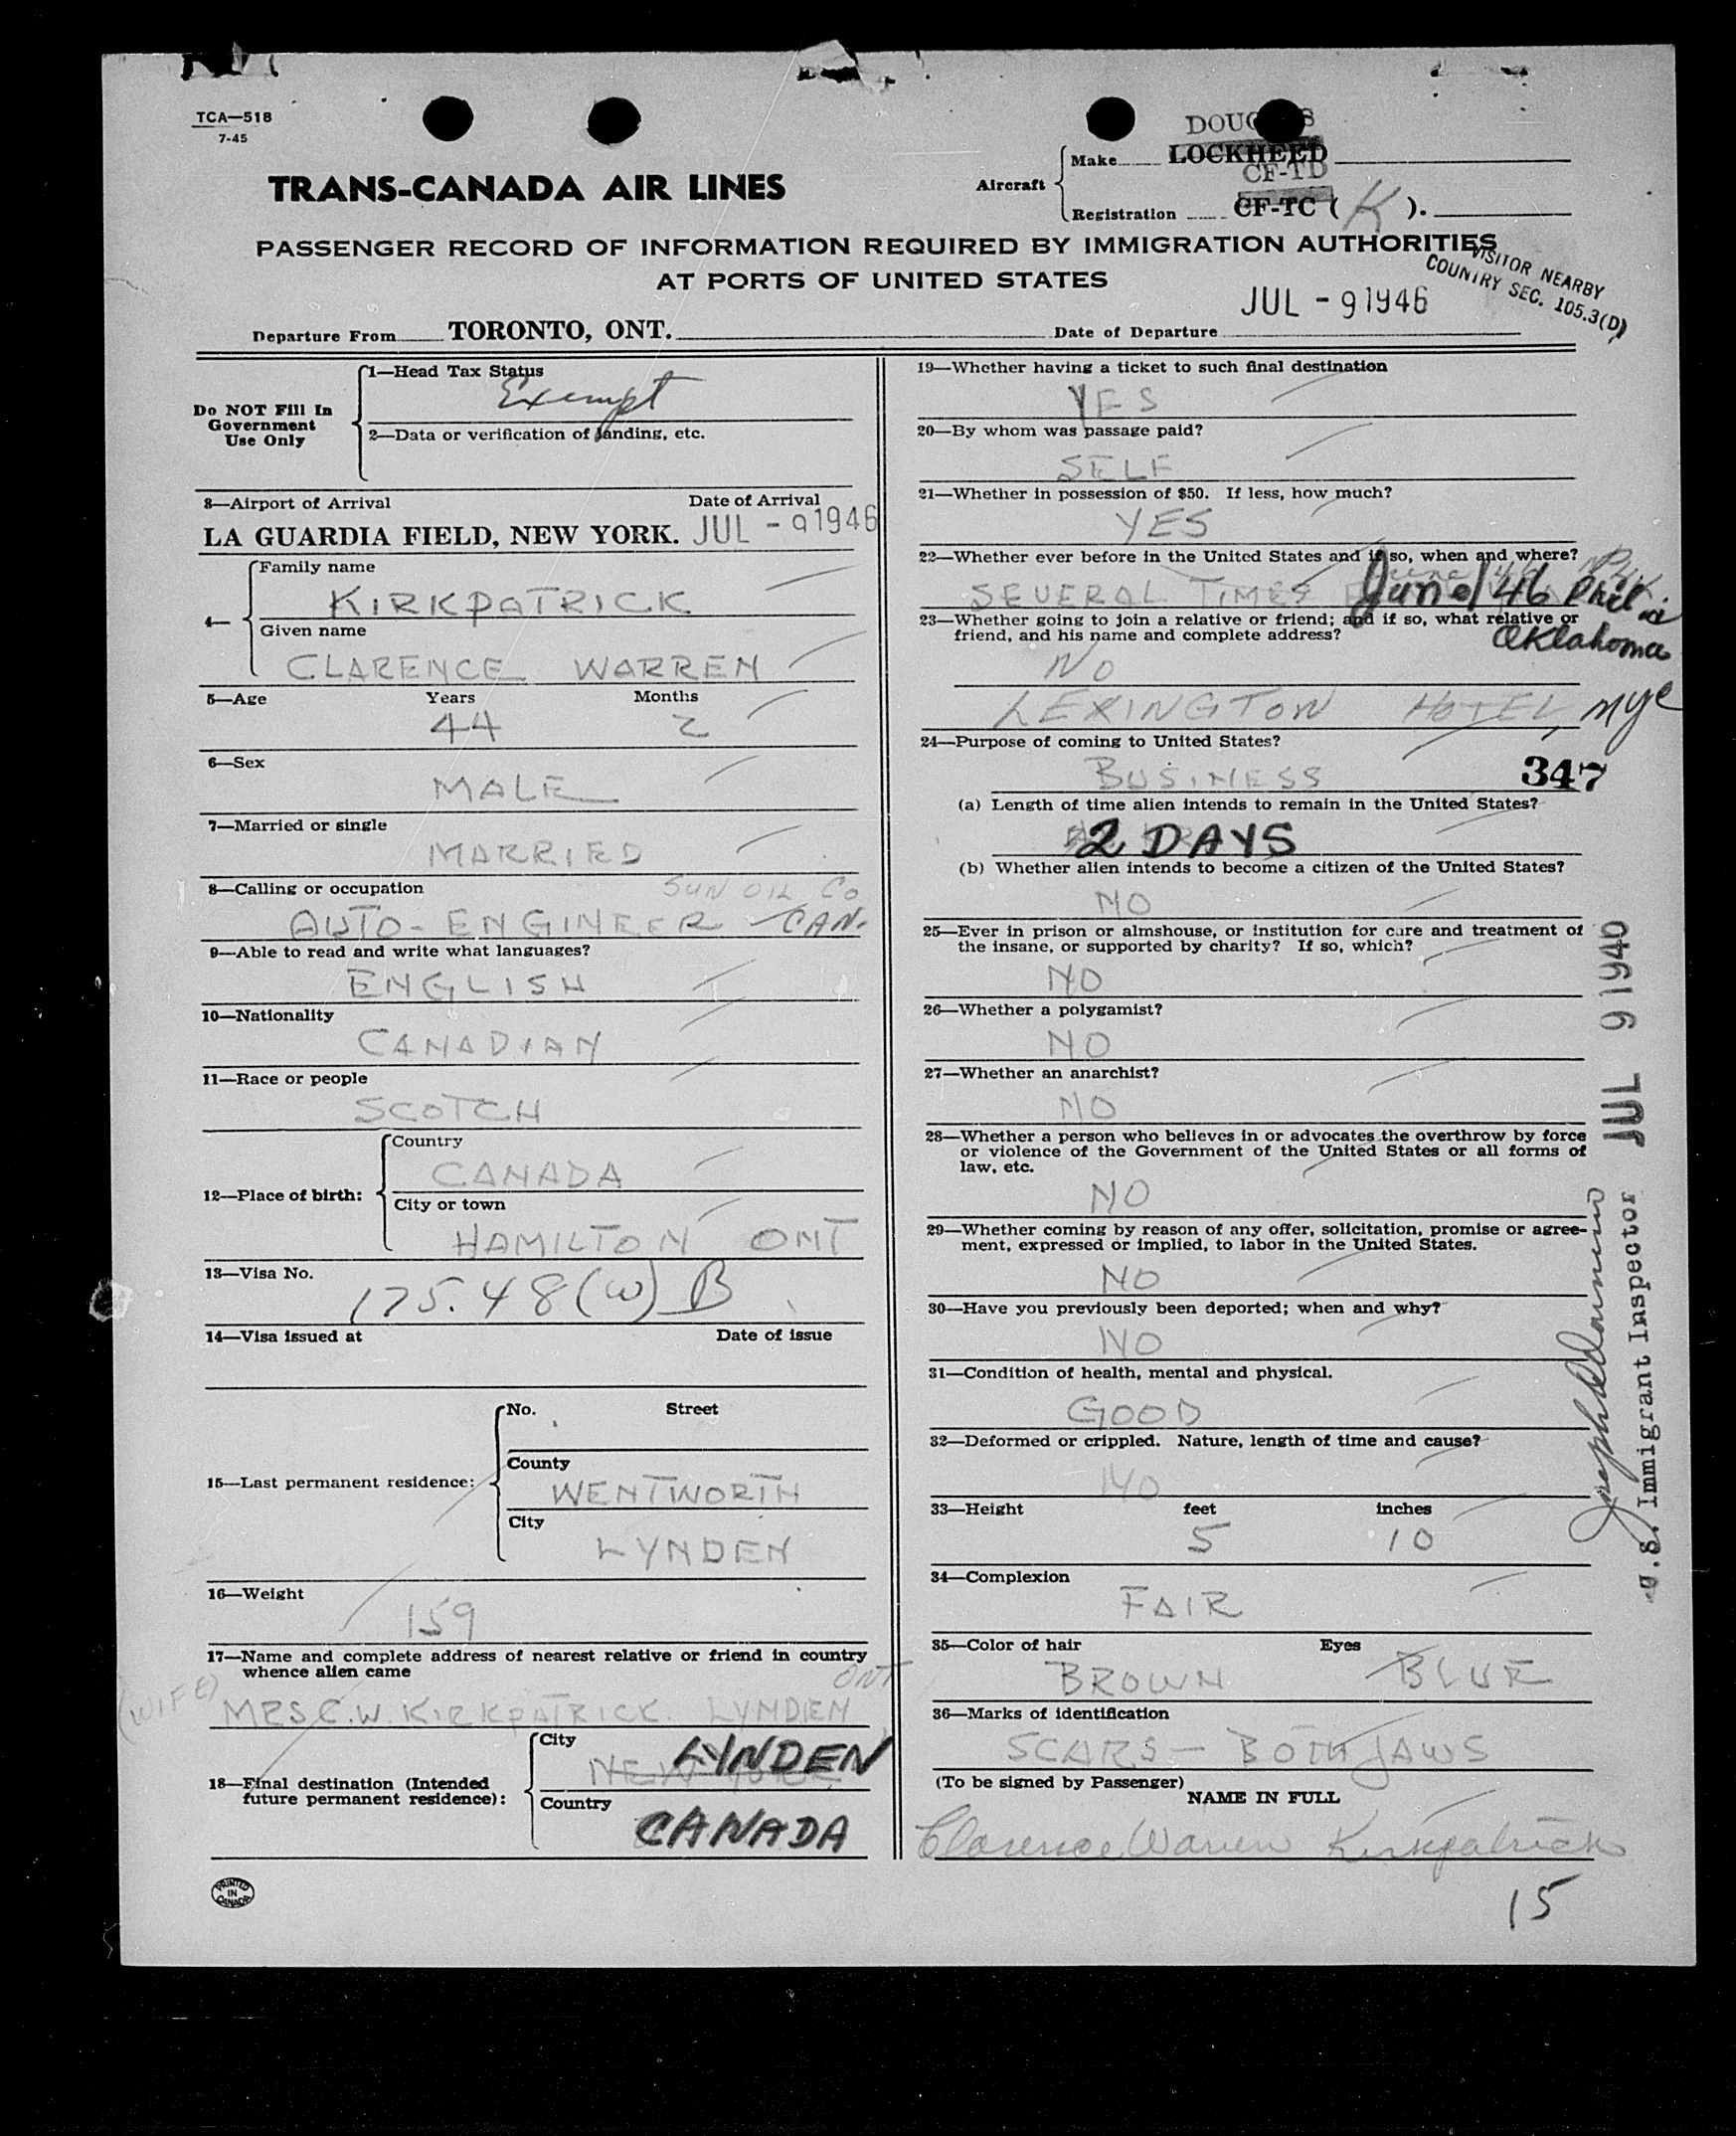 TCA—518
7-45
DOUG S
Aircraft
Make LOCKHEED
CF-TD
Registration CF-TC ( K ).
TRANS-CANADA AIR LINES
PASSENGER RECORD OF INFORMATION REQUIRED BY IMMIGRATION AUTHORITIES
AT PORTS OF UNITED STATES
VISITOR NEARBY
COUNTRY SEC. 105.3(D)
JUL - 9 1946
Departure From TORONTO, ONT. Date of Departure
Do NOT Fill In
Government
Use Only
1—Head Tax Status
Exempt
2—Data or verification of landing, etc.
3—Airport of Arrival Date of Arrival
LA GUARDIA FIELD, NEW YORK. JUL - 9 1946
4—
Family name
KIRKPATRICK
Given name
CLARENCE WARREN
5—Age Years Months
44 2
6—Sex
MALE
7—Married or single
MARRIED
8—Calling or occupation SUN OIL CO
AUTO-ENGINEER CAN.
9—Able to read and write what languages?
ENGLISH
10—Nationality
CANADIAN
11—Race or people
SCOTCH
12—Place of birth:
Country
CANADA
City or town
HAMILTON ONT
13—Visa No.
175.48(W) B
14—Visa issued at Date of issue
15—Last permanent residence:
No. Street
County
WENTWORTH
City
LYNDEN
16—Weight
159
17—Name and complete address of nearest relative or friend in country
whence alien came
ONT
(WIFE) MRS C.W. KIRKPATRICK. LYNDEN
18—Final destination (Intended
future permanent residence):
City
NEW YORK LYNDEN
Country
CANADA
PRINTED
IN
CANADA
19—Whether having a ticket to such final destination
YES
20—By whom was passage paid?
SELF
21—Whether in possession of $50. If less, how much?
YES
22—Whether ever before in the United States and if so, when and where?
SEVERAL TIMES June/46 Phil.
23—Whether going to join a relative or friend; and if so, what relative or
friend, and his name and complete address?
Oklahoma
NO
LEXINGTON HOTEL, NYC
24—Purpose of coming to United States?
BUSINESS
347
(a) Length of time alien intends to remain in the United States?
2 DAYS
(b) Whether alien intends to become a citizen of the United States?
NO
25—Ever in prison or almshouse, or institution for care and treatment of
the insane, or supported by charity? If so, which?
NO
26—Whether a polygamist?
NO
27—Whether an anarchist?
NO
28—Whether a person who believes in or advocates the overthrow by force
or violence of the Government of the United States or all forms of
law, etc.
NO
29—Whether coming by reason of any offer, solicitation, promise or agree-
ment, expressed or implied, to labor in the United States.
NO
30—Have you previously been deported; when and why?
NO
31—Condition of health, mental and physical.
GOOD
32—Deformed or crippled. Nature, length of time and cause?
NO
33—Height feet inches
5 10
34—Complexion
FAIR
35—Color of hair Eyes
BROWN BLUE
36—Marks of identification
SCARS — BOTH JAWS
(To be signed by Passenger)
NAME IN FULL
Clarence Warren Kirkpatrick
15
JUL 9 1946
U.S. Immigrant Inspector